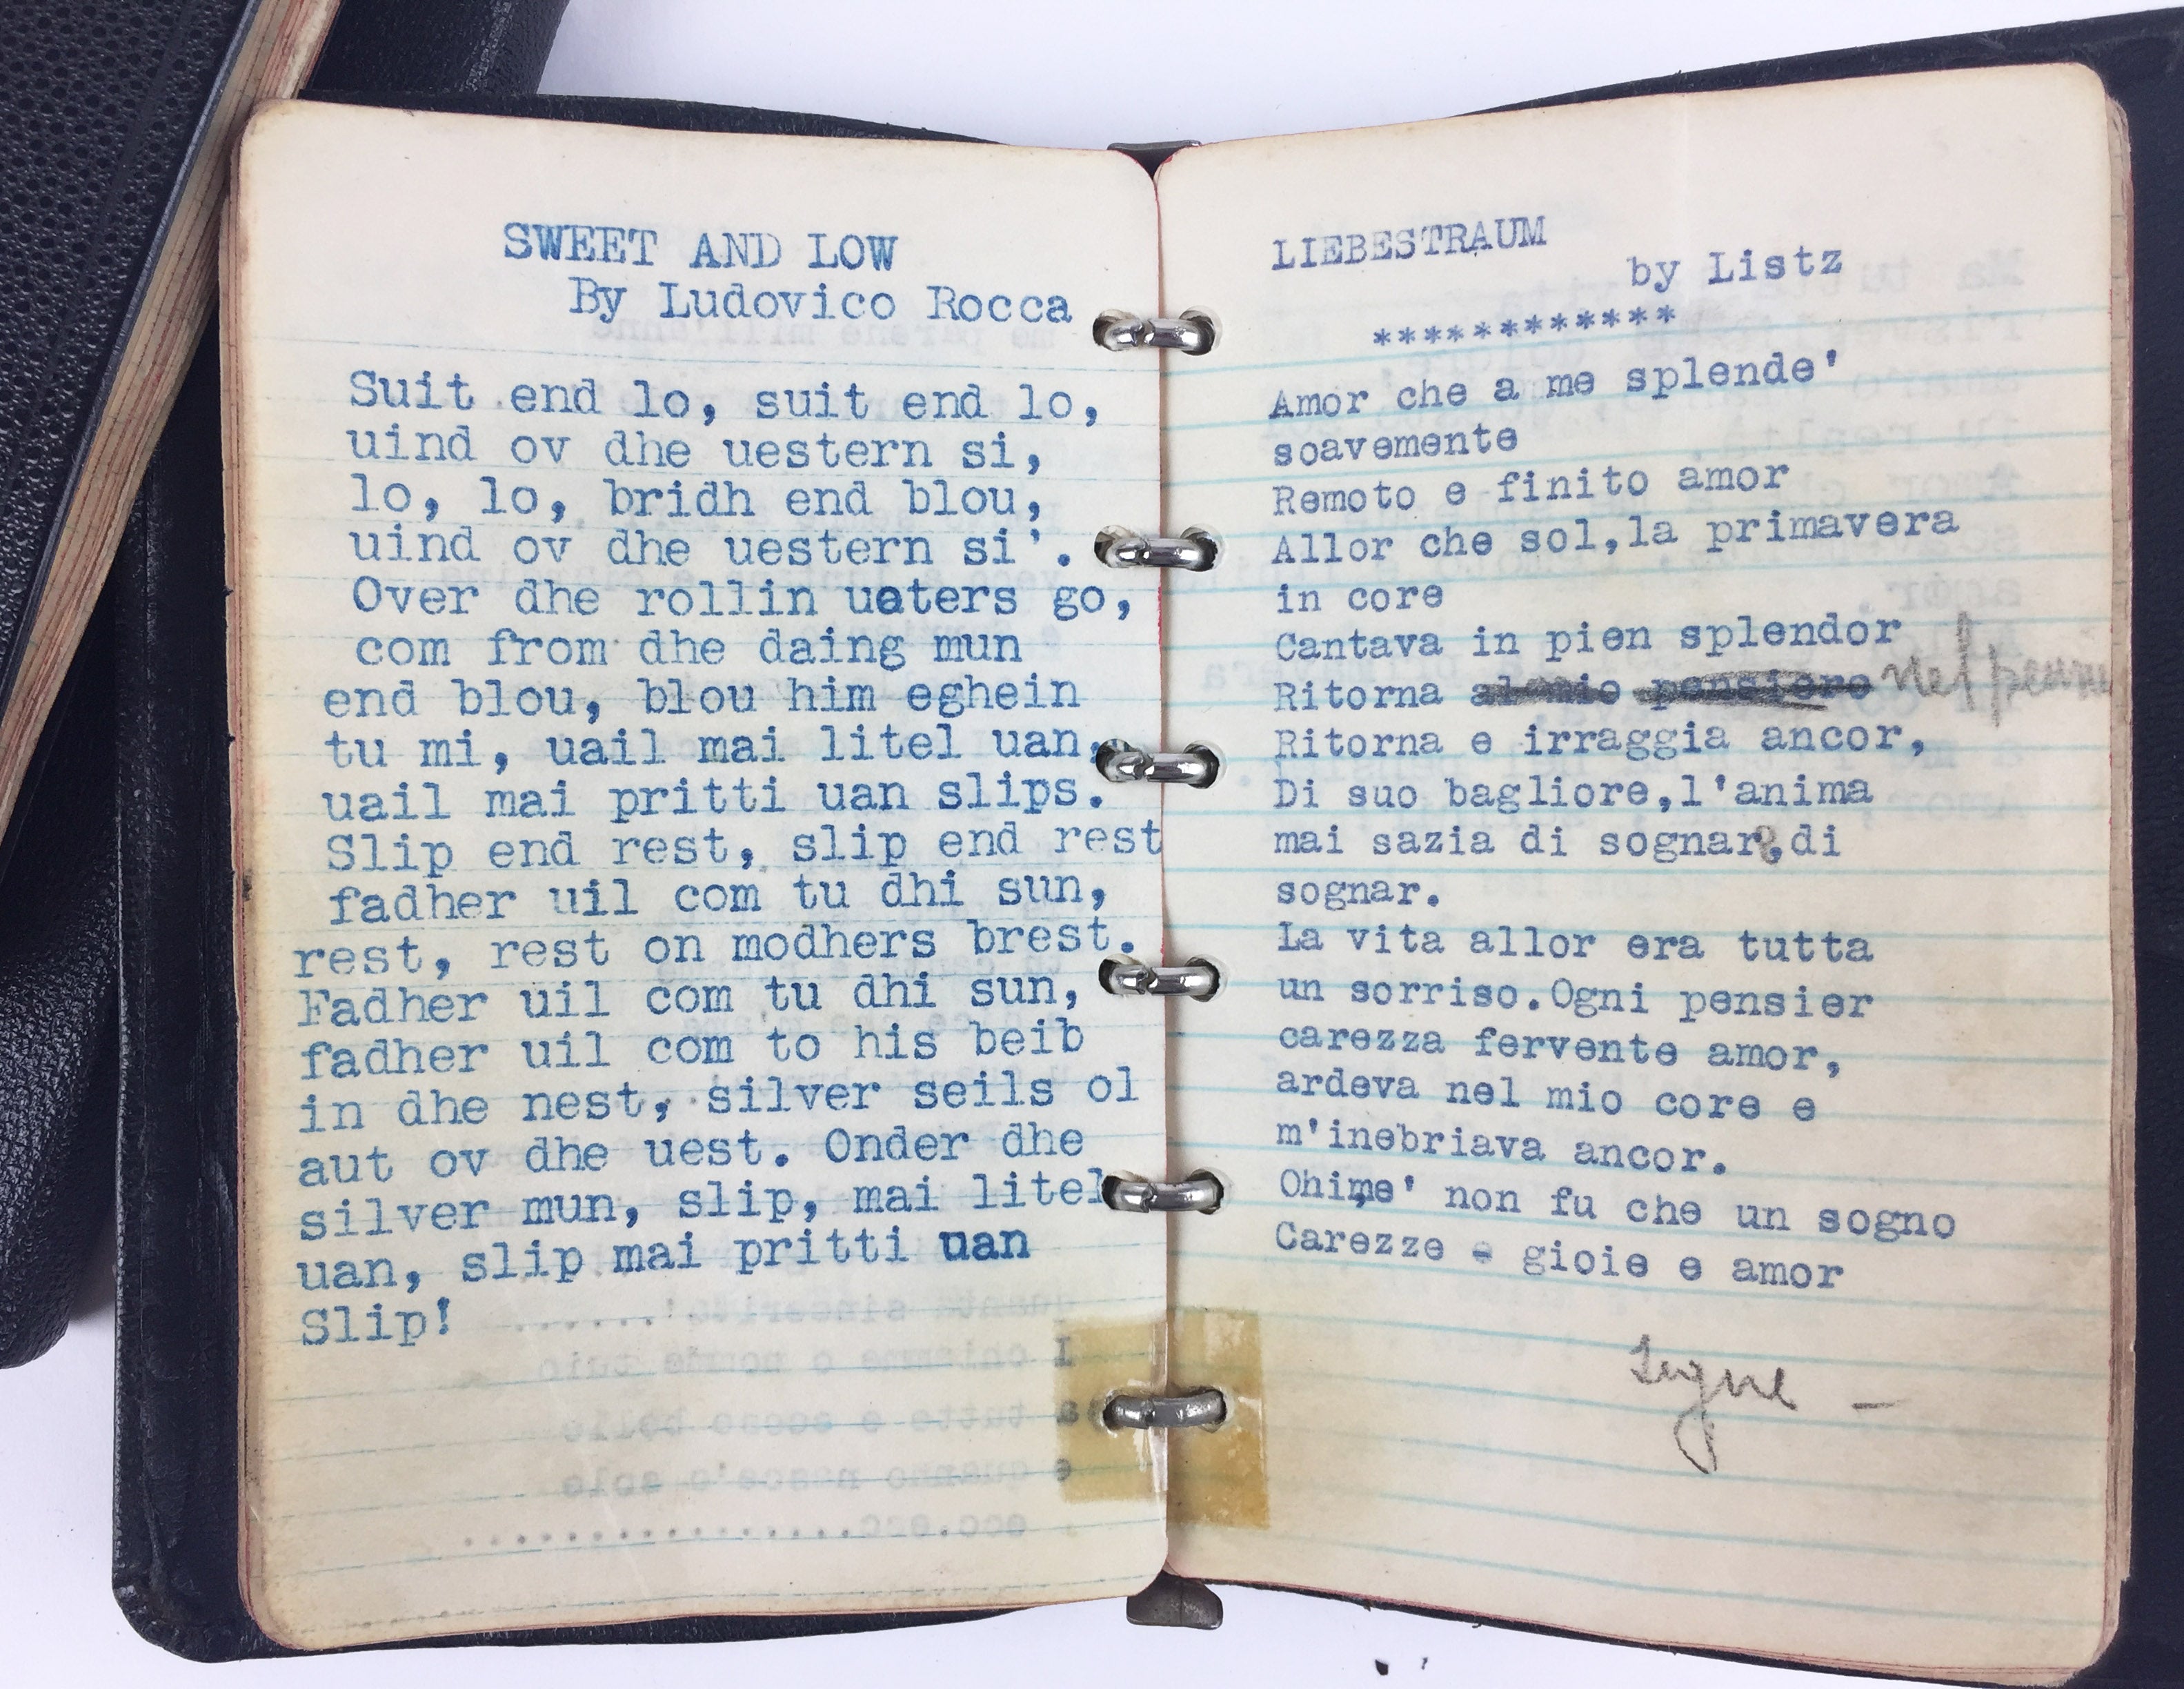 SWEET AND LOW
By Ludovico Rocca
Suit end lo, suit end lo,
uind ov dhe uestern si,
lo, lo, bridh end blou,
uind ov dhe uestern si'.
Over dhe rollin uaters go,
com from dhe daing mun
end blou, blou him eghein
tu mi, uail mai litel uan,
uail mai pritti uan slips.
Slip end rest, slip end rest
fadher uil com tu dhi sun,
rest, rest on modhers brest.
Fadher uil com tu dhi sun,
fadher uil com to his beib
in dhe nest, silver seils ol
aut ov dhe uest. Onder dhe
silver mun, slip, mai litel
uan, slip mai pritti uan
Slip!
LIEBESTRAUM
by Listz
************
Amor che a me splende'
soavemente
Remoto e finito amor
Allor che sol,la primavera
in core
Cantava in pien splendor
Ritorna al mio pensiero nel
Ritorna e irraggia ancor,
Di suo bagliore,l'anima
mai sazia di sognar,di
sognar.
La vita allor era tutta
un sorriso.Ogni pensier
carezza fervente amor,
ardeva nel mio core e
m'inebriava ancor.
Ohime' non fu che un sogno
Carezze e gioie e amor
segue -